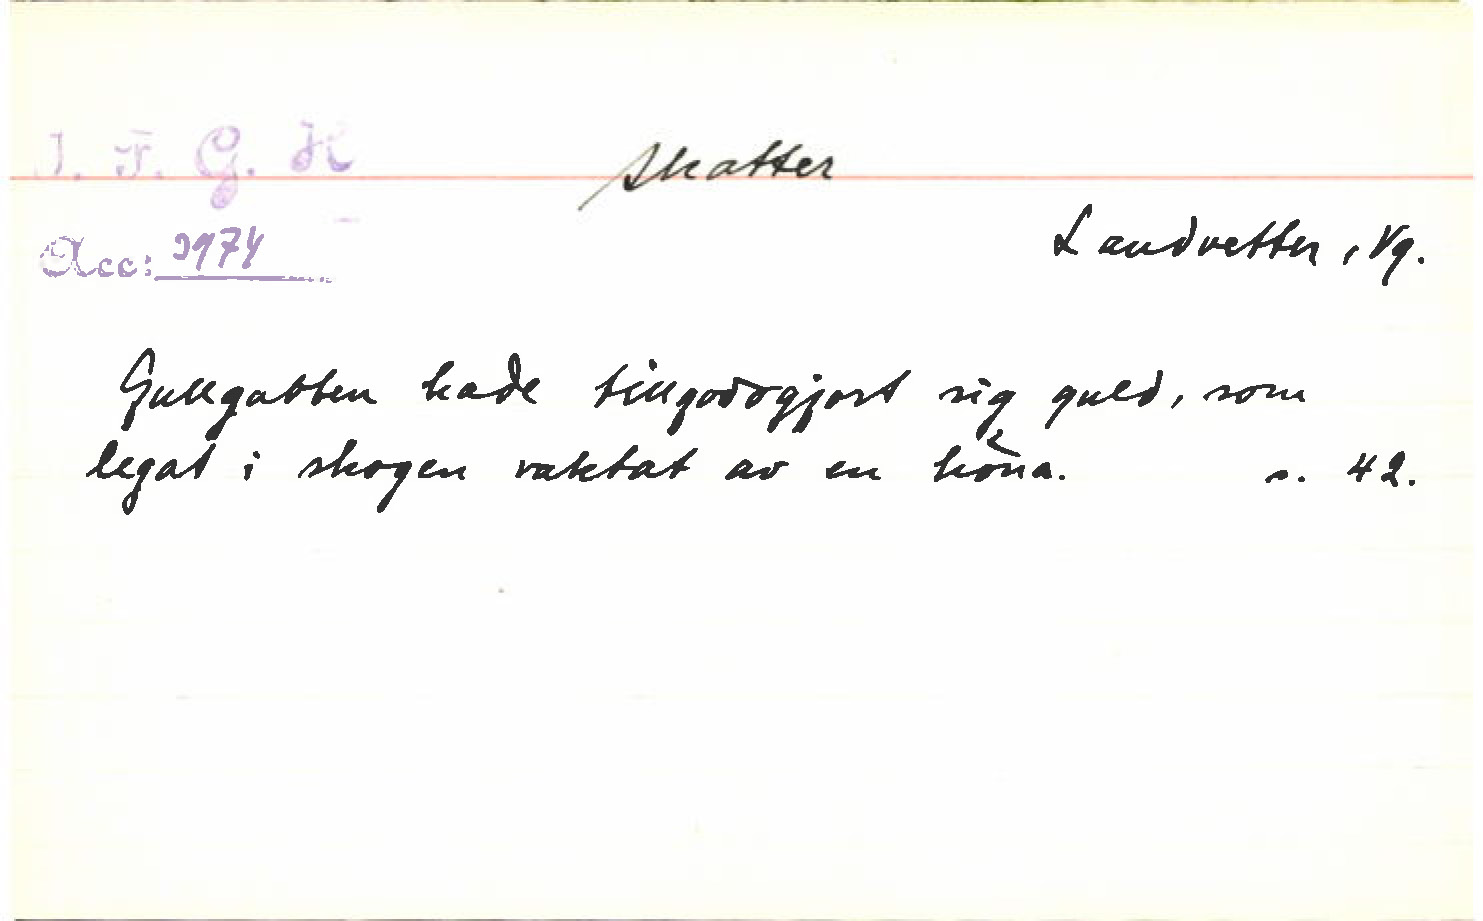 I. F. G. H
Skatter
Landvetter, Vg.
Acc: 3974
Gullgubben hade tillgodogjort sig guld, som
legat i skogen vaktat av en höna. s. 42.